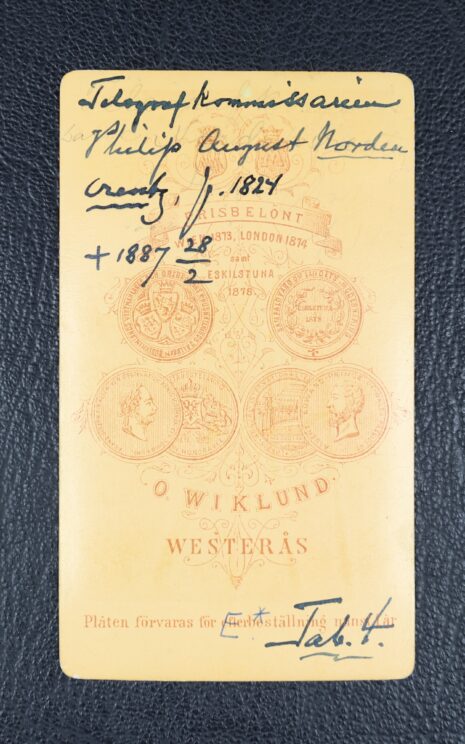 Telegrafkommissarien
Philip August Norden
crentz, f. 1824
PRISBELÖNT
WIEN 1873, LONDON 1874
samt
ESKILSTUNA
1878.
+ 1887 28/2
ESKILSTUNA
1878
O. WIKLUND
WESTERÅS
Plåten förvaras för efterbeställning många år
E*
Tab. 4.